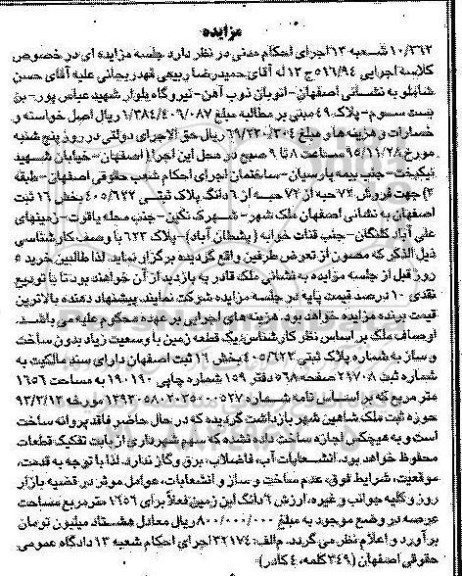 مزایده
۱۰/۳۶۲ شعبه ۱۳ اجرای احکام مدنی در نظر دارد جلسه مزایده ای در خصوص
کلاسه اجرایی ۵۱۶/۹۴ ج ۱۳ له آقای حمیدرضا ربیعی قهدریجانی علیه آقای حسن
شاملو به نشانی اصفهان-اتوبان ذوب آهن-نیروگاه بلوار شهید عباس پور-بن
بست سوم-پلاک ۴۹ مبنی بر مطالبه مبلغ ۶/۳۸۴/۴۰۶/۰۸۷ ریال اصل خواسته و
خسارات و هزینه ها و مبلغ ۶۹/۲۲۰/۳۰۴ ریال حق الاجرای دولتی در روز پنج شنبه
مورخ ۹۵/۱۱/۲۸ ساعت ۸ تا ۹ صبح در محل این اجرا (اصفهان-خیابان شهید
نیکبخت-جنب بیمه پارسیان-ساختمان اجرای احکام شعب حقوقی اصفهان-طبقه
۲) جهت فروش ۷۲ حبه از ۷۲ حبه از ۶ دانگ پلاک ثبتی ۴۰۵/۶۲۲ بخش ۱۶ ثبت
اصفهان به نشانی اصفهان ملک شهر-شهرک نگین-جنب محله یاقوت-زمینهای
علی آباد گلنگان-جنب قنات خرابه ( )-پلاک ۶۲۳ با وصف کارشناسی
ذیل الذکر که مصون از تعرض طرفین واقع گردیده برگزار نماید. لذا طالبین خرید ۵
روز قبل از جلسه مزایده به نشانی ملک قادر به بازدید از آن خواهند بود تا با تودیع
نقدی ۱۰ درصد قیمت پایه در جلسه مزایده شرکت نمایند. پیشنهاد دهنده بالاترین
قیمت برنده مزایده خواهد بود. هزینه های اجرایی بر عهده محکوم علیه می باشد.
اوصاف ملک بر اساس نظر کارشناس: یک قطعه زمین با وسعیت زیاد بدون ساخت
و ساز به شماره پلاک ثبتی ۴۰۵/۶۲۲ بخش ۱۶ ثبت اصفهان دارای سند مالکیت به
شماره ثبت ۲۹۷۰۸ صفحه ۵۶۸ دفتر ۱۵۹ شماره چاپی ۱۹۰۱۹۰ به مساحت ۱۶۵۶
متر مربع که بر اساس نامه شماره مورخه ۹۳/۳/۱۲
حوزه ثبت ملک شاهین شهر بازداشت گردیده که در حال حاضر فاقد پروانه ساخت
است و به هیچکس اجازه ساخت داده نشده که سهم شهرداری از بابت تفکیک قطعات
محفوظ خواهد بود. انشعابات آب، فاضلاب، برق و گاز ندارد. لذا با توجه به قدمت،
موقعیت، شرایط فوق، عدم ساخت و ساز و انشعابات، عوامل موثر در قضیه بازار
روز و کلیه جوانب و غیره، ارزش ۶ دانگ این زمین فعلاً برای ۱۶۵۶ مترمربع مساحت
عرصه در وضع موجود به مبلغ ۸۰۰/۰۰۰/۰۰۰ ریال معادل هشتاد میلیون تومان
برآورد و اعلام نظر می گردد. م الف: ۳۲۱۷۴ اجرای احکام شعبه ۱۳ دادگاه عمومی
حقوقی اصفهان (۳۴۹ کلمه، ۴ کادر)